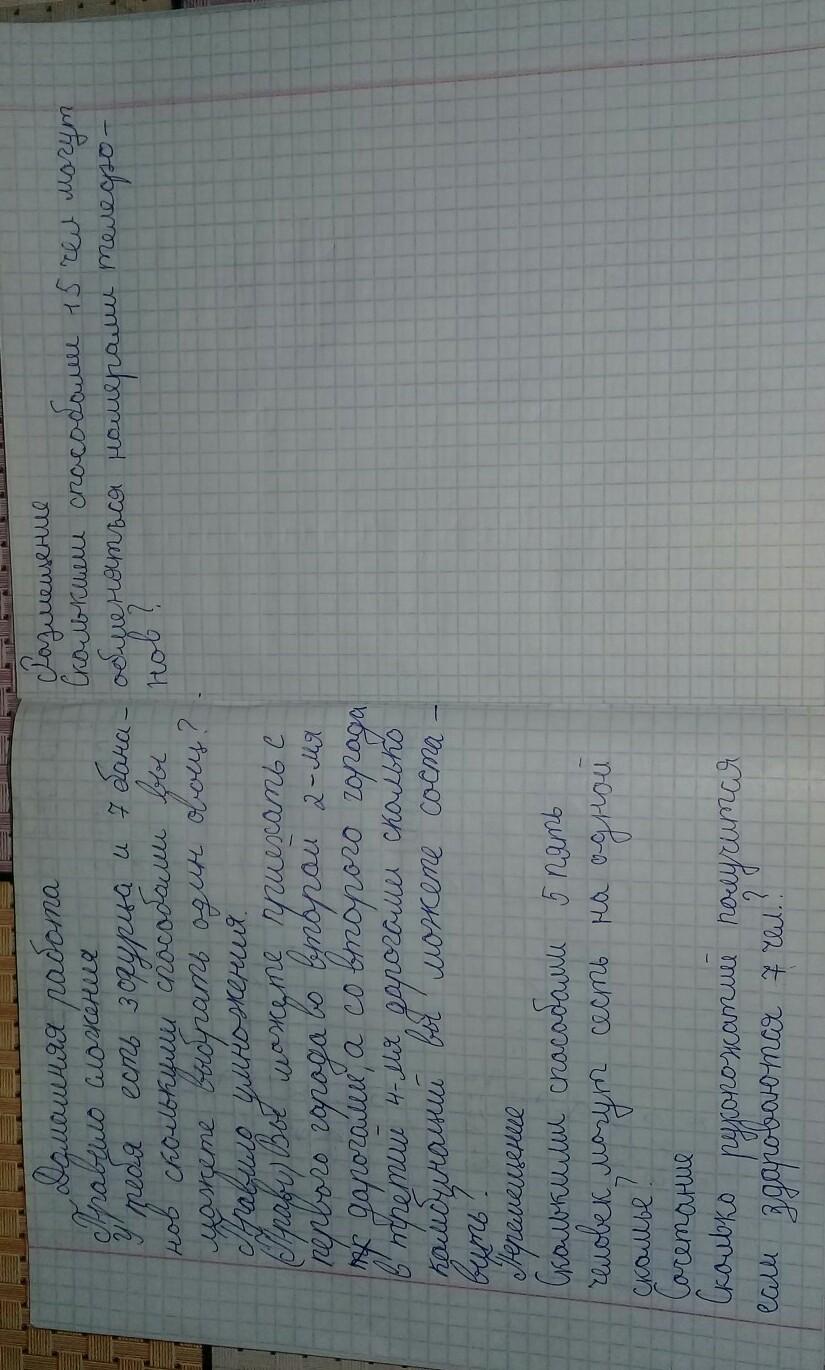 Домашняя работа
Правило сложение
У тебя есть 3 огурца и 7 бана-
нов сколькими способами вы
можете выбрать один овощ?
Правило умножения.
(Прави) Вы можете приехать с
первого города во второй 2-мя
дорогами, а со второго города
в третий 4-мя дорогами сколько
комбинаций вы можете соста-
вить.
Перемещение
Сколькими способами 5 пять
человек могут сесть на одной
скамье?
Сочетание
Сколько рукопожатий получится
если здороваются 7 чел.?
Размещение
Сколькими способами 15 чел могут
обменяться номерами телефо-
нов?